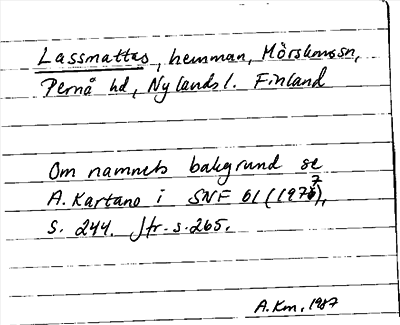 Lassmattas, hemman, Mörskomssn,
Pernå hd, Nylands l. Finland
Om namnets bakgrund se
A. Kartano i SNF 61 (1977),
s. 244. Jfr. s. 265.
A.Km, 1987